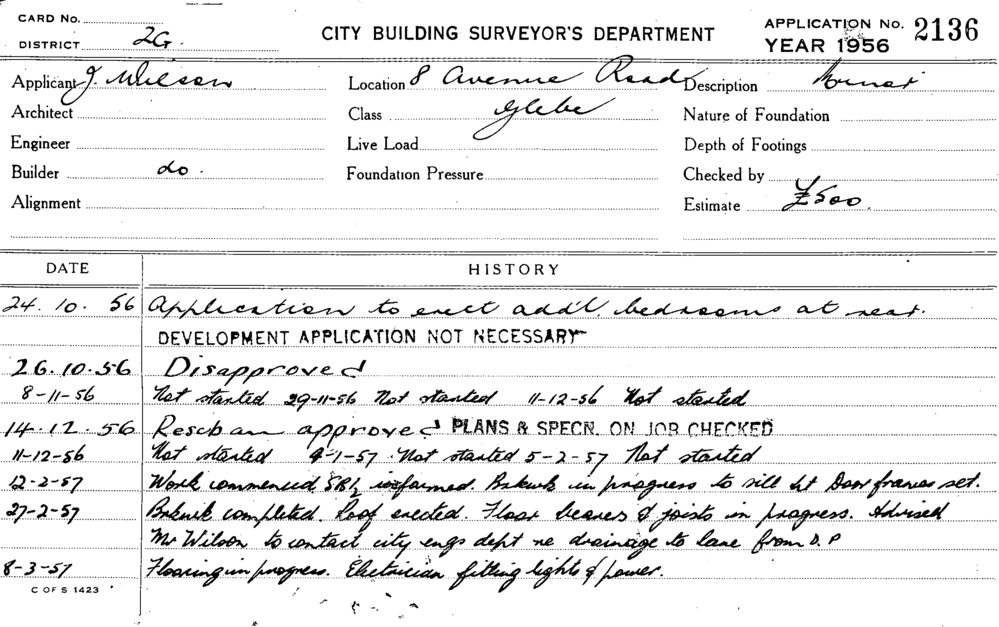 CARD No.
DISTRICT 2G.
CITY BUILDING SURVEYOR'S DEPARTMENT
APPLICATION No. 2136
YEAR 1956
Applicant J. Wilson Location 8 Avenue Road Description
Architect Class Glebe Nature of Foundation
Engineer Live Load Depth of Footings
Builder do. Foundation Pressure Checked by
Alignment Estimate £500.
DATE HISTORY
24. 10. 56 Application to erect add'l bedrooms at rear.
DEVELOPMENT APPLICATION NOT NECESSARY
26.10.56 Disapproved
8-11-56 Not started 29-11-56 Not started 11-12-56 Not started
14.12.56 approved PLANS & SPECN. ON JOB CHECKED
11-12-56 Not started 9-1-57 Not started 5-2-57 Not started
12-2-57 Work commenced informed. Bnkwk in progress to sill ht Door frames set.
27-2-57 Bnkwk completed. Roof erected. Floor bearers & joists in progress. Advised
Mr Wilson to contact city engs dept re drainage to lane from D.P
8-3-57 Flooring in progress. Electrician fitting lights & power.
C OF S 1423